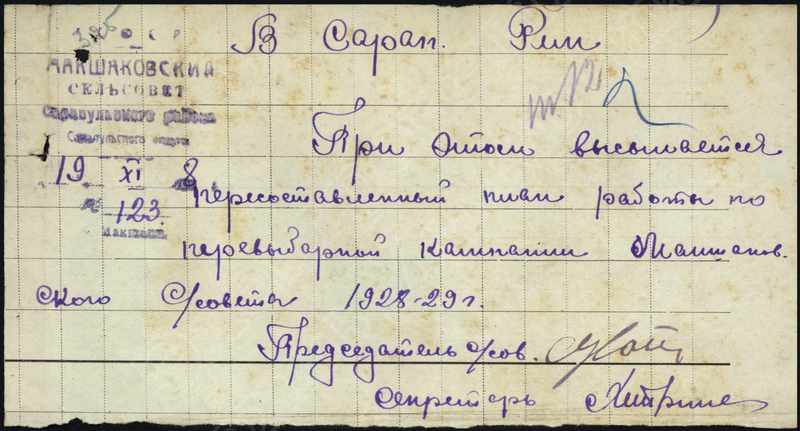 В Сарап. Рик
МАКШАКОВСКИЙ
СЕЛЬСОВЕТ
Сарапульского района
Сарапульского округа
19 XI 8
№ 123
При этом высылается
пересоставленный план работы по
перевыборной кампании Макшаков.
ского С/совета 1928-29 г.
Председатель с/сов.
Секретарь